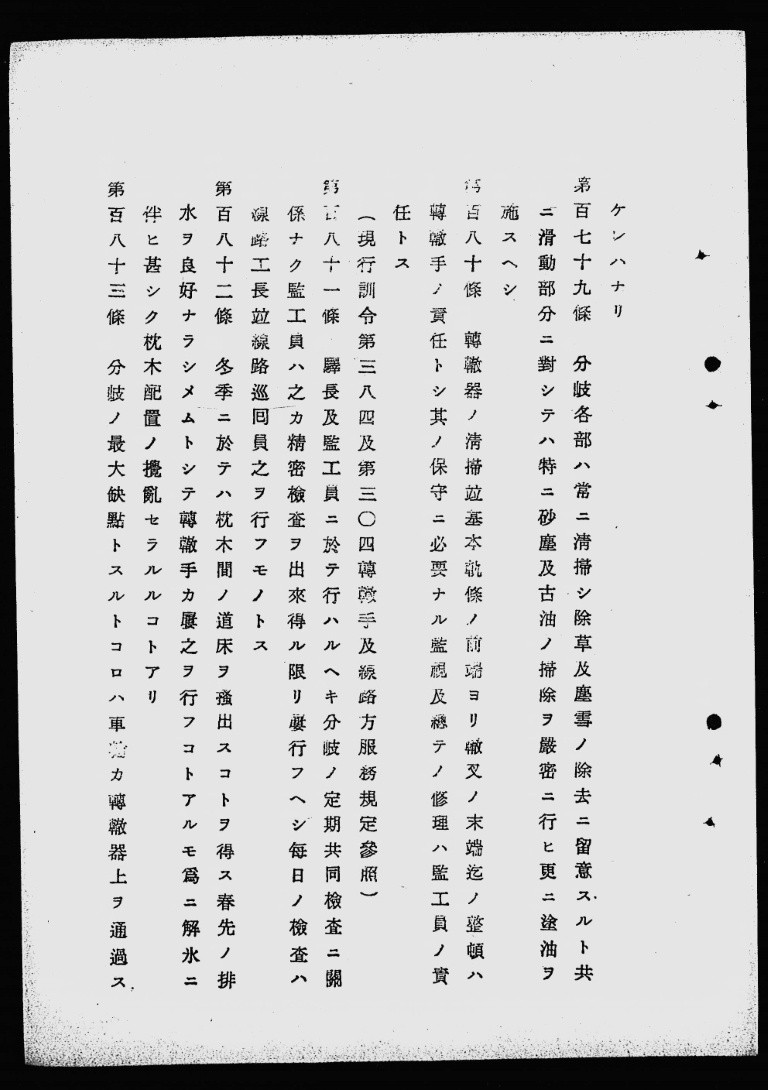 ケンハナリ
第百七十九條　分岐各部ハ常ニ淸掃シ除草及塵雪ノ除去ニ留意スルト共
ニ滑動部分ニ對シテハ特ニ砂塵及古油ノ掃除ヲ嚴密ニ行ヒ更ニ塗油ヲ
施スヘシ
第百八十條　轉轍器ノ淸掃竝基本軌條ノ前端ヨリ轍叉ノ末端迄ノ整頓ハ
轉轍手ノ責任トシ其ノ保守ニ必要ナル監視及總テノ修理ハ監工員ノ責
任トス
（現行訓令第三八四及第三〇四轉轍手及線路方服務規定參照）
第百八十一條　驛長及監工員ニ於テ行ハルヘキ分岐ノ定期共同檢査ニ關
係ナク監工員ハ之カ精密檢査ヲ出來得ル限リ屢行フヘシ每日ノ檢査ハ
線路工長竝線路巡囘員之ヲ行フモノトス
第百八十二條　冬季ニ於テハ枕木間ノ道床ヲ搔出スコトヲ得ス春先ノ排
水ヲ良好ナラシメムトシテ轉轍手カ屢之ヲ行フコトアルモ爲ニ解氷ニ
伴ヒ甚シク枕木配置ノ攪亂セラルルコトアリ
第百八十三條　分岐ノ最大缺點トスルトコロハ車カ轉轍器上ヲ通過ス